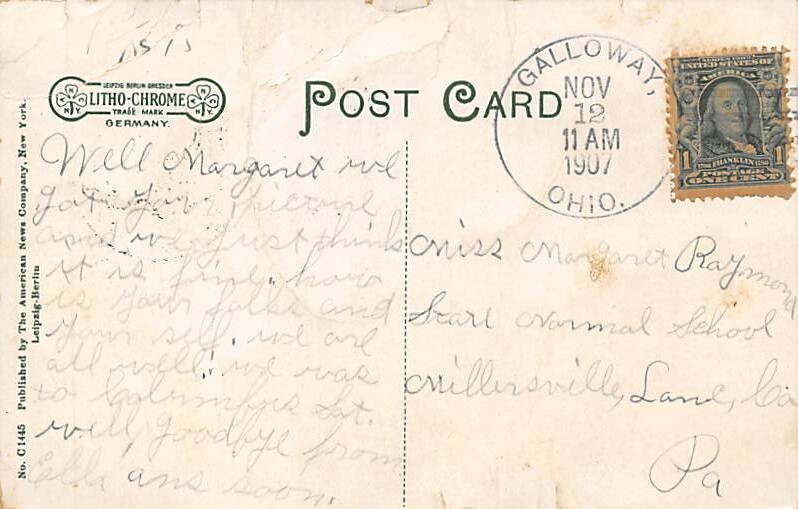 LEIPZIG BERLIN DRESDEN
LITHO-CHROME
TRADE MARK
GERMANY.
POST CARD
GALLOWAY,
NOV
12
11 AM
1907
OHIO.
SERIES 1902
UNITED STATES OF
AMERICA
1 FRANKLIN 1
POSTAGE
ONE CENT
No. C1445 Published by The American News Company, New York.
Leipzig-Berlin
Well Margaret we
got your picture
and we just think
it is fine. how
is your folks and
your self. we are
all well. we was
to Columbus Sat.
well goodbye from
Ella ans soon.
Miss Margaret Raymond
State Normal School
Millersville, Lanc, Co
Pa